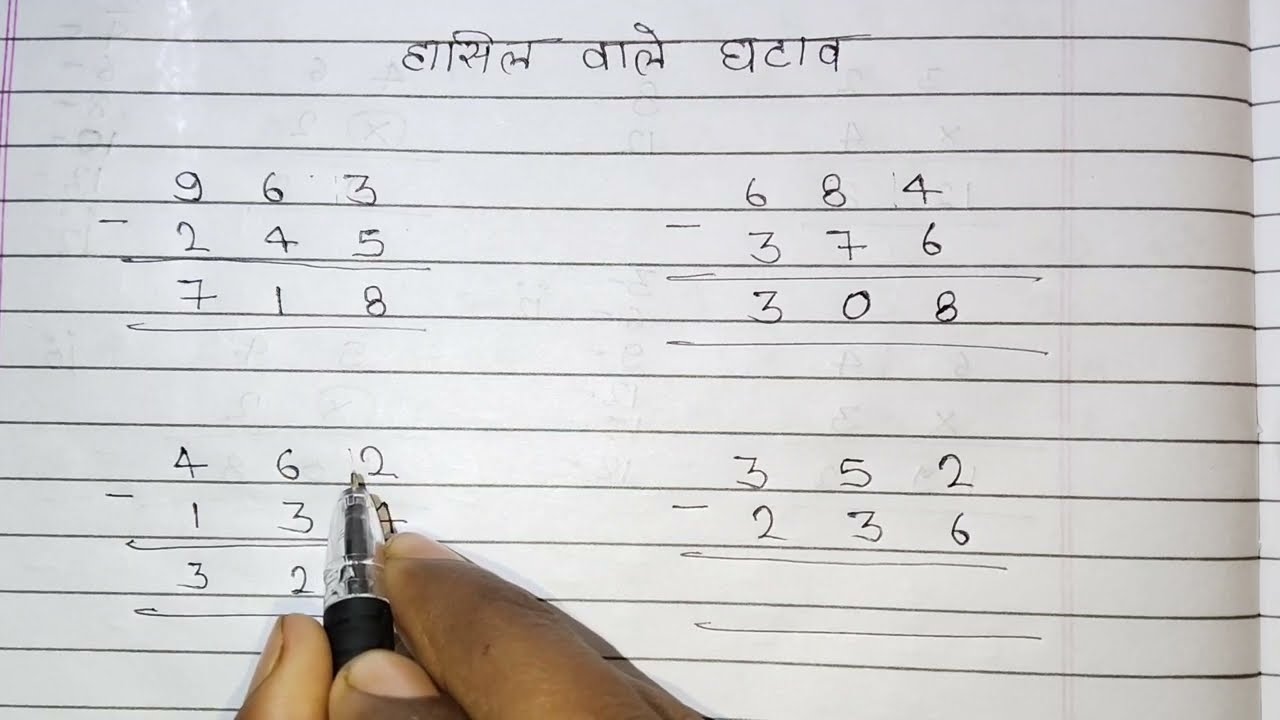 हासिल वाले घटाव
9 6 3
- 2 4 5
7 1 8
6 8 4
- 3 7 6
3 0 8
4 6 12
- 1 3
3 2
3 5 2
- 2 3 6